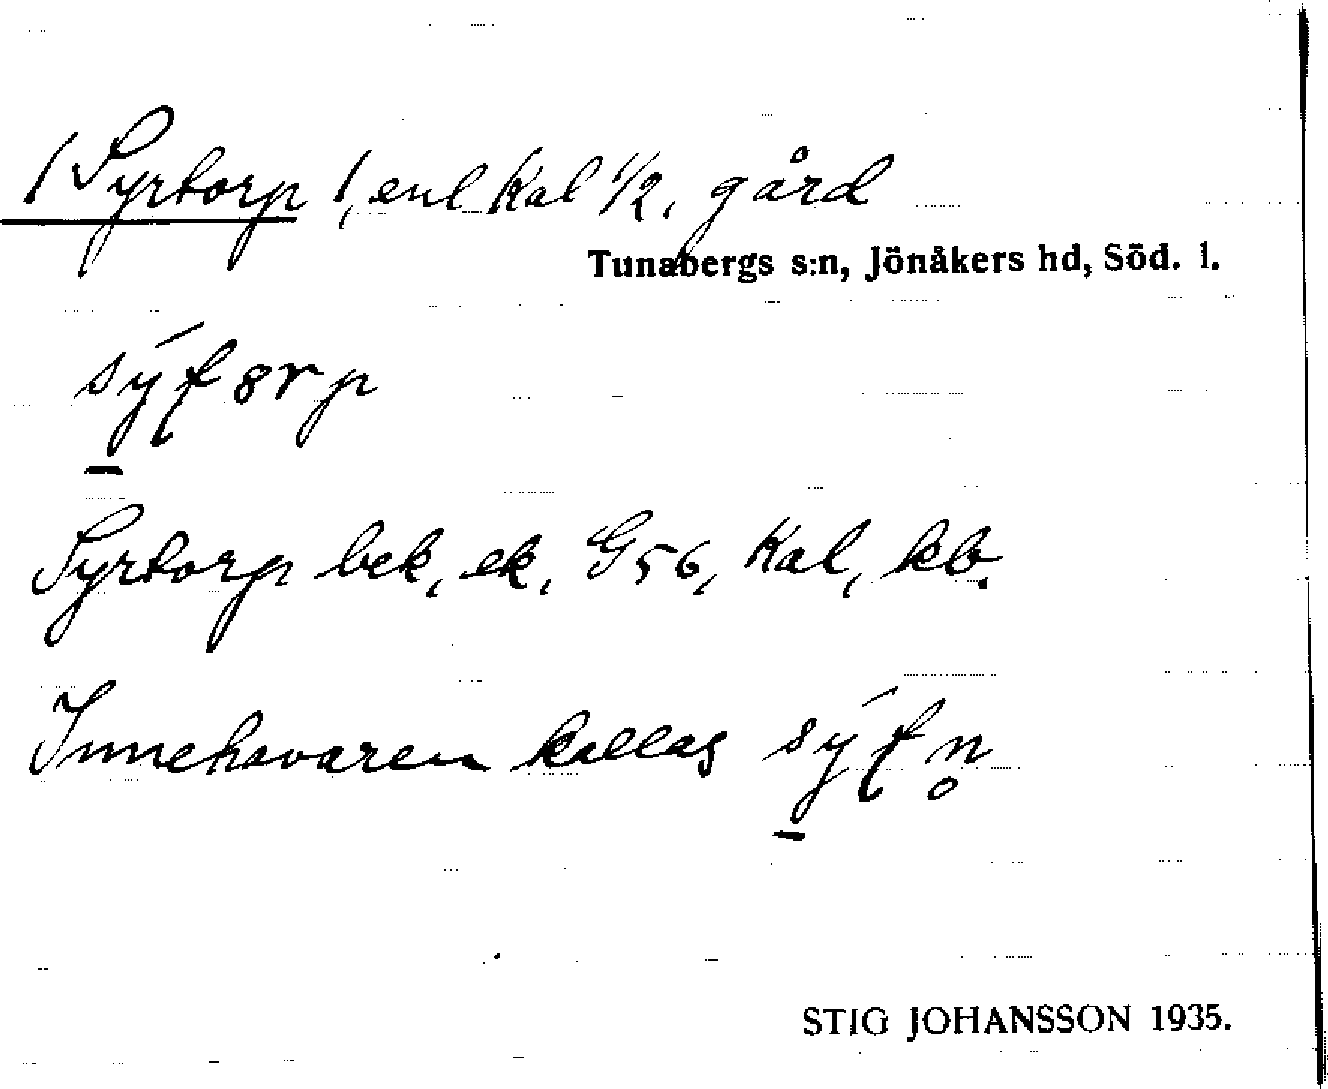 / Syrtorp /, enl Kal 1/2, gård
Tunabergs s:n, Jönåkers hd, Söd. l.
Syrtorp bek, ek, G56, Kal, kb.
Innehavaren kallas
STIG JOHANSSON 1935.